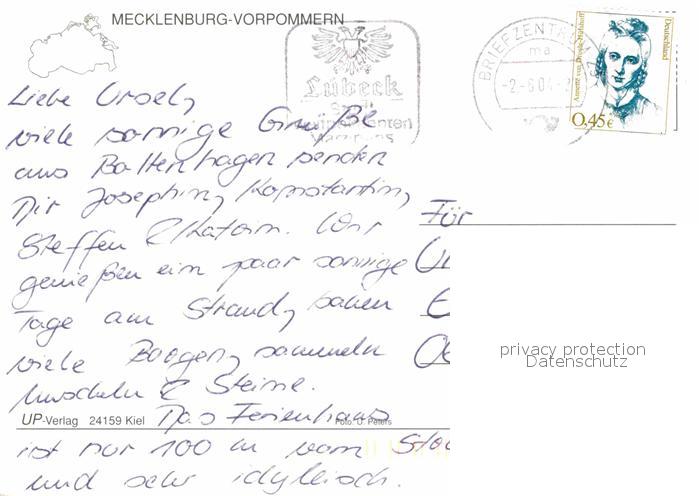 MECKLENBURG-VORPOMMERN
Lübeck
BRIEFZENTRUM
ma
-2.-6.04-
Deutschland
Annette von Droste-Hülshoff
0,45€
Liebe Ursel,
viele sonnige Grüße
aus Boltenhagen senden
Dir Josephin, Konstantin,
Steffen & Katrin. Wir
genießen ein paar sonnige
Tage am Strand, bauen
viele Burgen, sammeln
Muscheln & Steine.
UP-Verlag 24159 Kiel Das Ferienhaus Foto: U. Peters
ist nur 100 m vom
und sehr idyllisch.
Für
privacy protection
Datenschutz